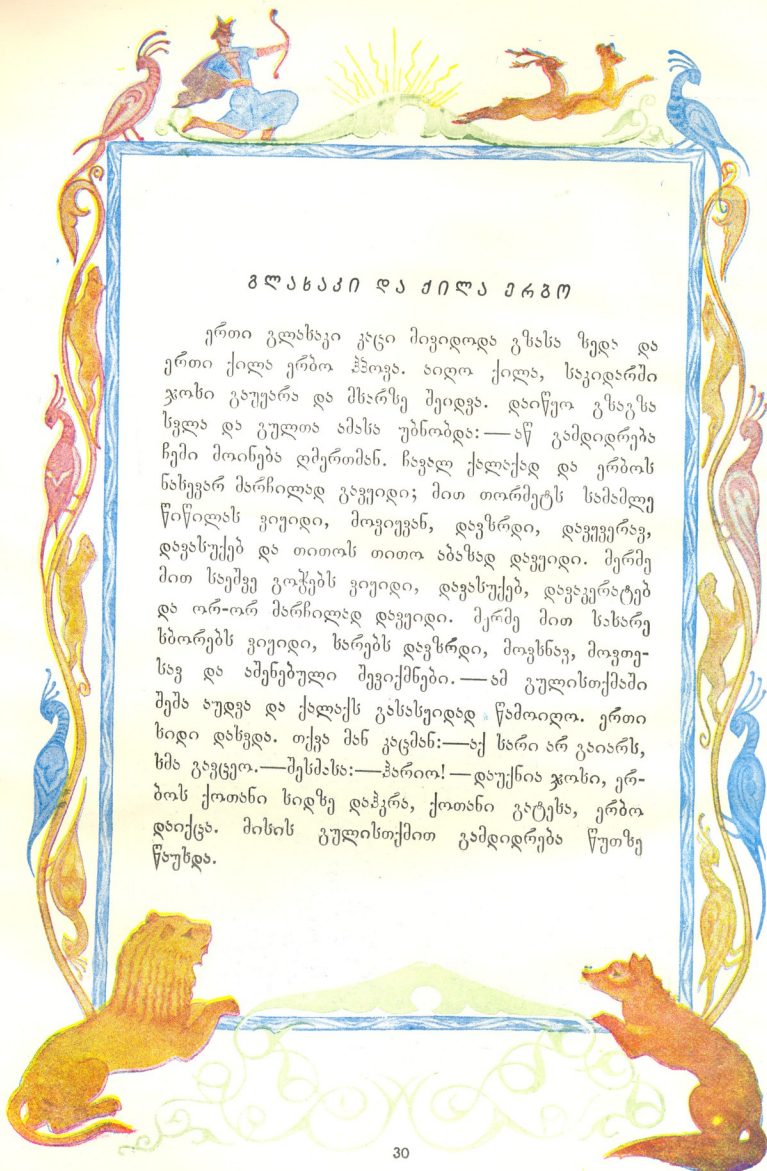 გლახაკი და ქილა ერბო
ერთი გლახაკი კაცი მივიდოდა გზასა ზედა და
ერთი ქილა ერბო ჰპოვა. აიღო ქილა, საკიდარში
ჯოხი გაუყარა და მხარზე შეიდვა. დაიწყო გზაგზა
სვლა და გულთა ამასა უბნობდა: — აწ გამდიდრება
ჩემი მოინება ღმერთმან. ჩავალ ქალაქად და ერბოს
ნახევარ მარჩილად გავყიდი; მით თორმეტს სამამლე
წიწილას ვიყიდი, მოვიყვან, დავზრდი, დავყვერავ,
დავასუქებ და თითოს თითო აბაზად დავყიდი. მერმე
მით საეშვე გოჭებს ვიყიდი, დავასუქებ, დავაკერატებ
და ორ-ორ მარჩილად დავყიდი. მერმე მით სახარე
ხბორებს ვიყიდი, ხარებს დავზრდი, მოვხნავ, მოვთე-
სავ და აშენებული შევიქმნები. — ამ გულისთქმაში
შეშა აუდვა და ქალაქს გასასყიდად წამოიღო. ერთი
ხიდი დახვდა. თქვა მან კაცმან:—აქ ხარი არ გაიარს,
ხმა გავცეო.—შესძახა:—ჰარიო! — დაუქნია ჯოხი, ერ-
ბოს ქოთანი ხიდზე დაჰკრა, ქოთანი გატეხა, ერბო
დაიქცა. მისის გულისთქმით გამდიდრება წუთზე
წაუხდა.
30